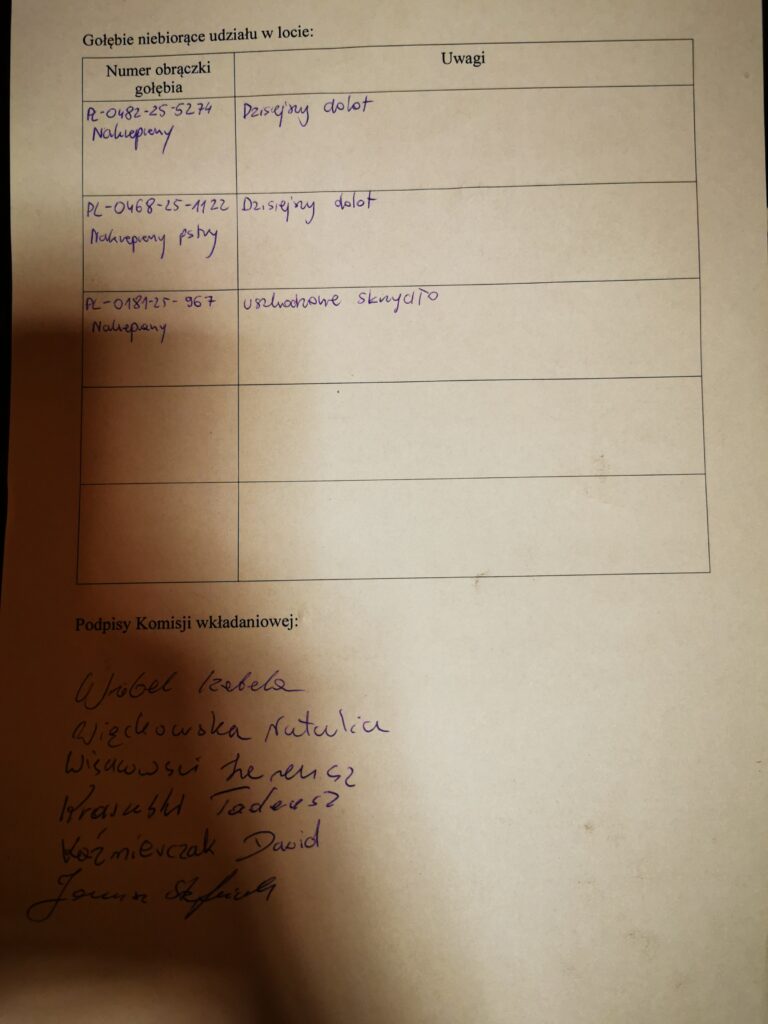 Gołębie niebiorące udziału w locie:
Numer obrączki
gołębia
Uwagi
PL-0482-25-5274
Nakrapiany
Dzisiejszy dolot
PL-0468-25-1122
Nakrapiany pstry
Dzisiejszy dolot
PL-0181-25-967
Nakrapiany
uszkodzone skrzydło
Podpisy Komisji wkładaniowej:
Wróbel Izabela
Więckowska Natalia
Ireneusz
Krasuski Tadeusz
Kaźmierczak Dawid
Janusz